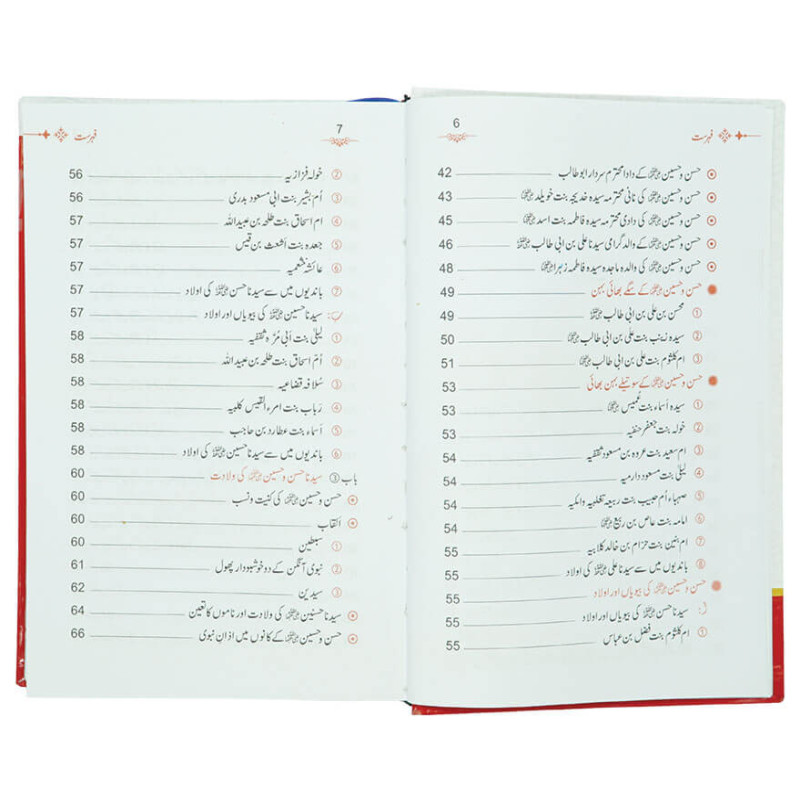 6
فہرست
حسن و حسین رضی اللہ عنہما کے دادا محترم سردار ابو طالب 42
حسن و حسین رضی اللہ عنہما کی نانی محترمہ سیدہ خدیجہ بنت خویلد رضی اللہ عنہا 43
حسن و حسین رضی اللہ عنہما کی دادی محترمہ سیدہ فاطمہ بنت اسد رضی اللہ عنہا 45
حسن و حسین رضی اللہ عنہما کے والد گرامی سیدنا علی بن ابی طالب رضی اللہ عنہ 46
حسن و حسین رضی اللہ عنہما کی والدہ ماجدہ سیدہ فاطمہ زہرا رضی اللہ عنہا 48
حسن و حسین رضی اللہ عنہما کے سگے بھائی بہن 49
① محسن بن علی بن ابی طالب 49
② سیدہ زینب بنت علی بن ابی طالب 50
③ ام کلثوم بنت علی بن ابی طالب 51
حسن و حسین رضی اللہ عنہما کے سوتیلے بہن بھائی 53
① سیدہ اسماء بنت عمیس رضی اللہ عنہا 53
② خولہ بنت جعفر حنفیہ 53
③ ام سعید بنت عروہ بن مسعود ثقفیہ 54
④ لیلیٰ بنت مسعود دارمیہ 54
⑤ صہباء ام حبیب بنت ربیعہ تغلبیہ 54
⑥ امامہ بنت عاص بن ربیع رضی اللہ عنہا 54
⑦ ام بنین بنت حزام بن خالد کلابیہ 55
⑧ باندیوں میں سے سیدنا علی رضی اللہ عنہ کی اولاد 55
حسن و حسین رضی اللہ عنہما کی بیویاں اور اولاد 55
سیدنا حسن رضی اللہ عنہ کی بیویاں اور اولاد 55
① ام کلثوم بنت فضل بن عباس 55
7
فہرست
② خولہ فزازیہ 56
③ اُم بشیر بنت ابی مسعود بدری 56
④ ام اسحاق بنت طلحہ بن عبیداللہ 57
⑤ جعدہ بنت اشعث بن قیس 57
⑥ عائشہ خثعمیہ 57
⑦ باندیوں میں سے سیدنا حسن رضی اللہ عنہ کی اولاد 57
سیدنا حسین رضی اللہ عنہ کی بیویاں اور اولاد 57
① لیلیٰ بنت اَبی مُرّہ ثقفیہ 58
② اُم اسحاق بنت طلحہ بن عبیداللہ 58
③ سُلافہ قضاعیہ 58
④ رباب بنت امرء القیس کلبیہ 58
⑤ اَسماء بنت عطارد بن حاجب 58
⑥ باندیوں میں سے سیدنا حسین رضی اللہ عنہ کی اولاد 58
باب ③ سیدنا حسن و حسین رضی اللہ عنہما کی ولادت 60
حسن و حسین رضی اللہ عنہما کی کنیت و نسب 60
اَلقاب 60
① سبطین 60
② نبوی آنگن کے دو خوشبودار پھول 61
③ سیدین 62
سیدنا حسنین رضی اللہ عنہما کی ولادت اور ناموں کا تعین 64
حسن و حسین رضی اللہ عنہما کے کانوں میں اذانِ نبوی 66